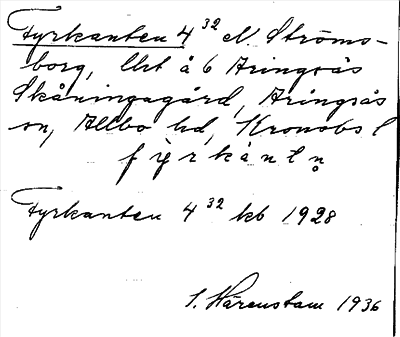 Fyrkanten 4³² N. Ströms-
borg, lht å 6 Aringsås
Skåningagård, Aringsås
sn, Allbo hd, Kronobs l
fy̆rkàntn̥
Fyrkanten 4³² kb 1928
S. Härenstam 1936